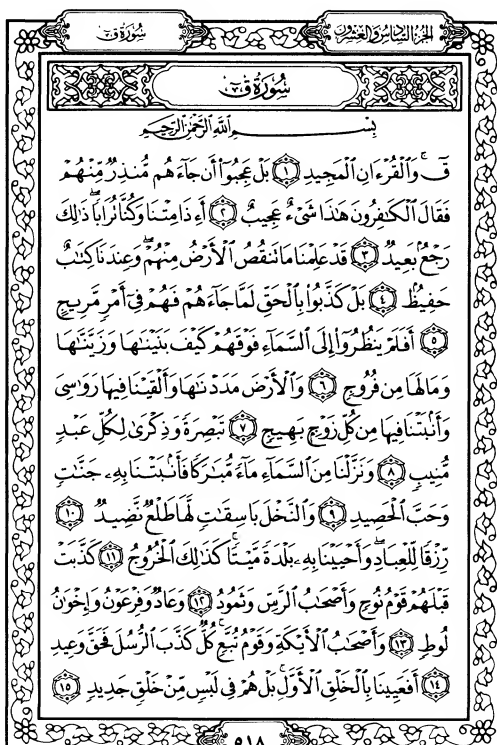 الجزء السادس والعشرون
سورة ق
سُورَةُ ق
بِسْمِ اللَّهِ الرَّحْمَٰنِ الرَّحِيمِ
قٓ ۚ وَالْقُرْءَانِ الْمَجِيدِ ۝١ بَلْ عَجِبُوٓا۟ أَن جَآءَهُم مُّنذِرٌ مِّنْهُمْ
فَقَالَ الْكَٰفِرُونَ هَٰذَا شَىْءٌ عَجِيبٌ ۝٢ أَءِذَا مِتْنَا وَكُنَّا تُرَابًا ۖ ذَٰلِكَ
رَجْعٌۢ بَعِيدٌ ۝٣ قَدْ عَلِمْنَا مَا تَنقُصُ الْأَرْضُ مِنْهُمْ ۖ وَعِندَنَا كِتَٰبٌ
حَفِيظٌۢ ۝٤ بَلْ كَذَّبُوا۟ بِالْحَقِّ لَمَّا جَآءَهُمْ فَهُمْ فِىٓ أَمْرٍ مَّرِيجٍ
۝٥ أَفَلَمْ يَنظُرُوٓا۟ إِلَى السَّمَآءِ فَوْقَهُمْ كَيْفَ بَنَيْنَٰهَا وَزَيَّنَّٰهَا
وَمَا لَهَا مِن فُرُوجٍ ۝٦ وَالْأَرْضَ مَدَدْنَٰهَا وَأَلْقَيْنَا فِيهَا رَوَٰسِىَ
وَأَنۢبَتْنَا فِيهَا مِن كُلِّ زَوْجٍۭ بَهِيجٍ ۝٧ تَبْصِرَةً وَذِكْرَىٰ لِكُلِّ عَبْدٍ
مُّنِيبٍ ۝٨ وَنَزَّلْنَا مِنَ السَّمَآءِ مَآءً مُّبَٰرَكًا فَأَنۢبَتْنَا بِهِۦ جَنَّٰتٍ
وَحَبَّ الْحَصِيدِ ۝٩ وَالنَّخْلَ بَاسِقَٰتٍ لَّهَا طَلْعٌ نَّضِيدٌ ۝١٠
رِّزْقًا لِّلْعِبَادِ ۖ وَأَحْيَيْنَا بِهِۦ بَلْدَةً مَّيْتًا ۚ كَذَٰلِكَ الْخُرُوجُ ۝١١ كَذَّبَتْ
قَبْلَهُمْ قَوْمُ نُوحٍ وَأَصْحَٰبُ الرَّسِّ وَثَمُودُ ۝١٢ وَعَادٌ وَفِرْعَوْنُ وَإِخْوَٰنُ
لُوطٍ ۝١٣ وَأَصْحَٰبُ الْأَيْكَةِ وَقَوْمُ تُبَّعٍ ۚ كُلٌّ كَذَّبَ الرُّسُلَ فَحَقَّ وَعِيدِ
۝١٤ أَفَعَيِينَا بِالْخَلْقِ الْأَوَّلِ ۚ بَلْ هُمْ فِى لَبْسٍ مِّنْ خَلْقٍ جَدِيدٍ ۝١٥
٥١٨